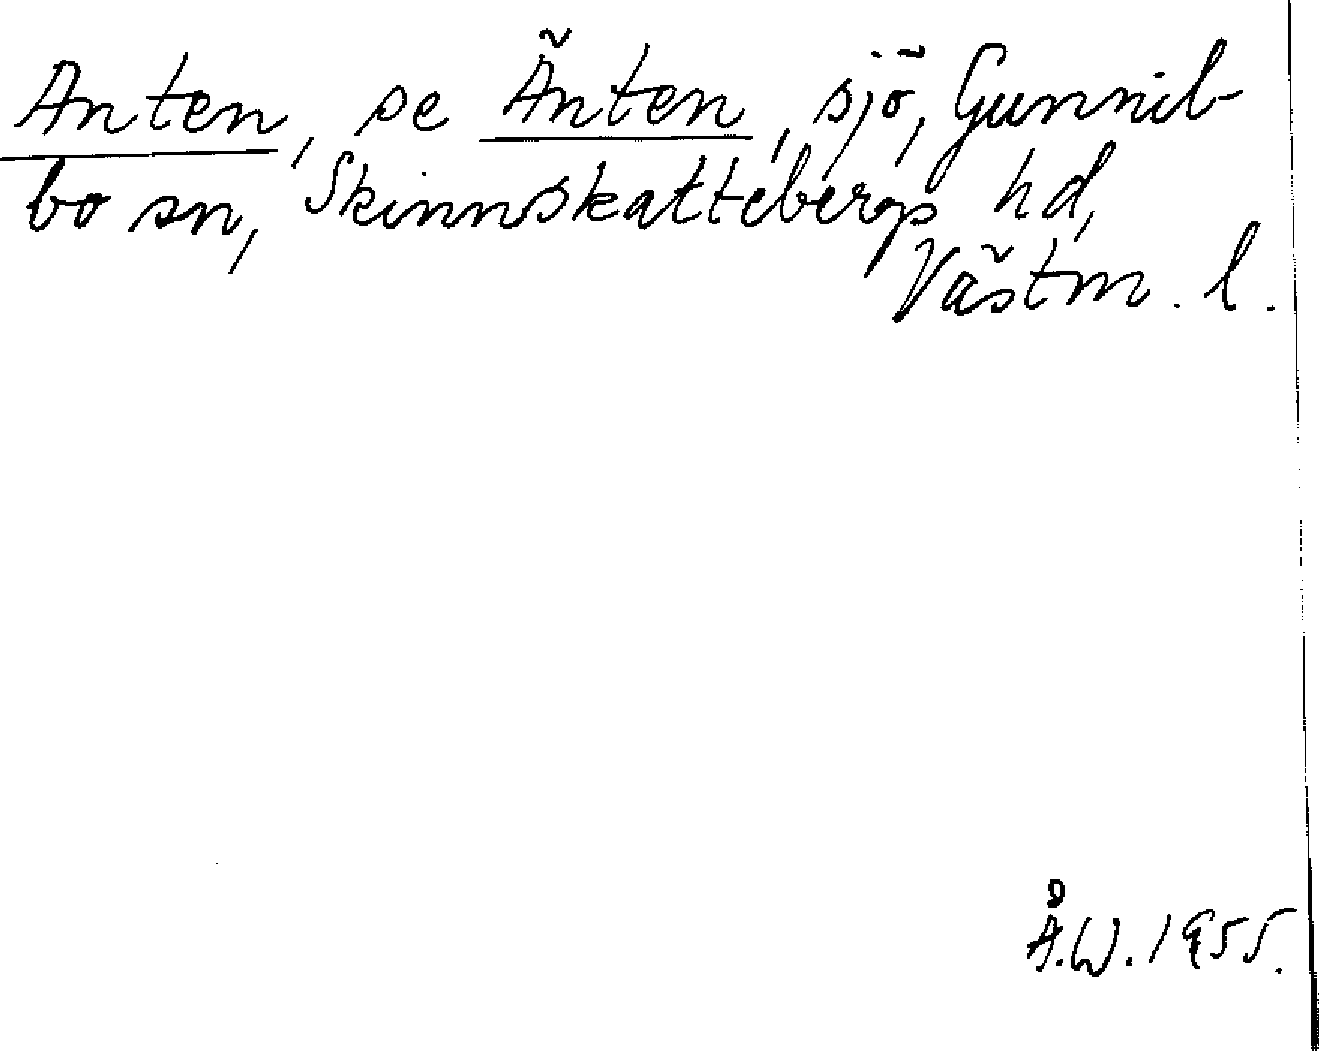 Anten, se Änten, sjö, Gunnil-
bo sn, Skinnskattebergs hd,
Västm. l.
Å.W. 1955.